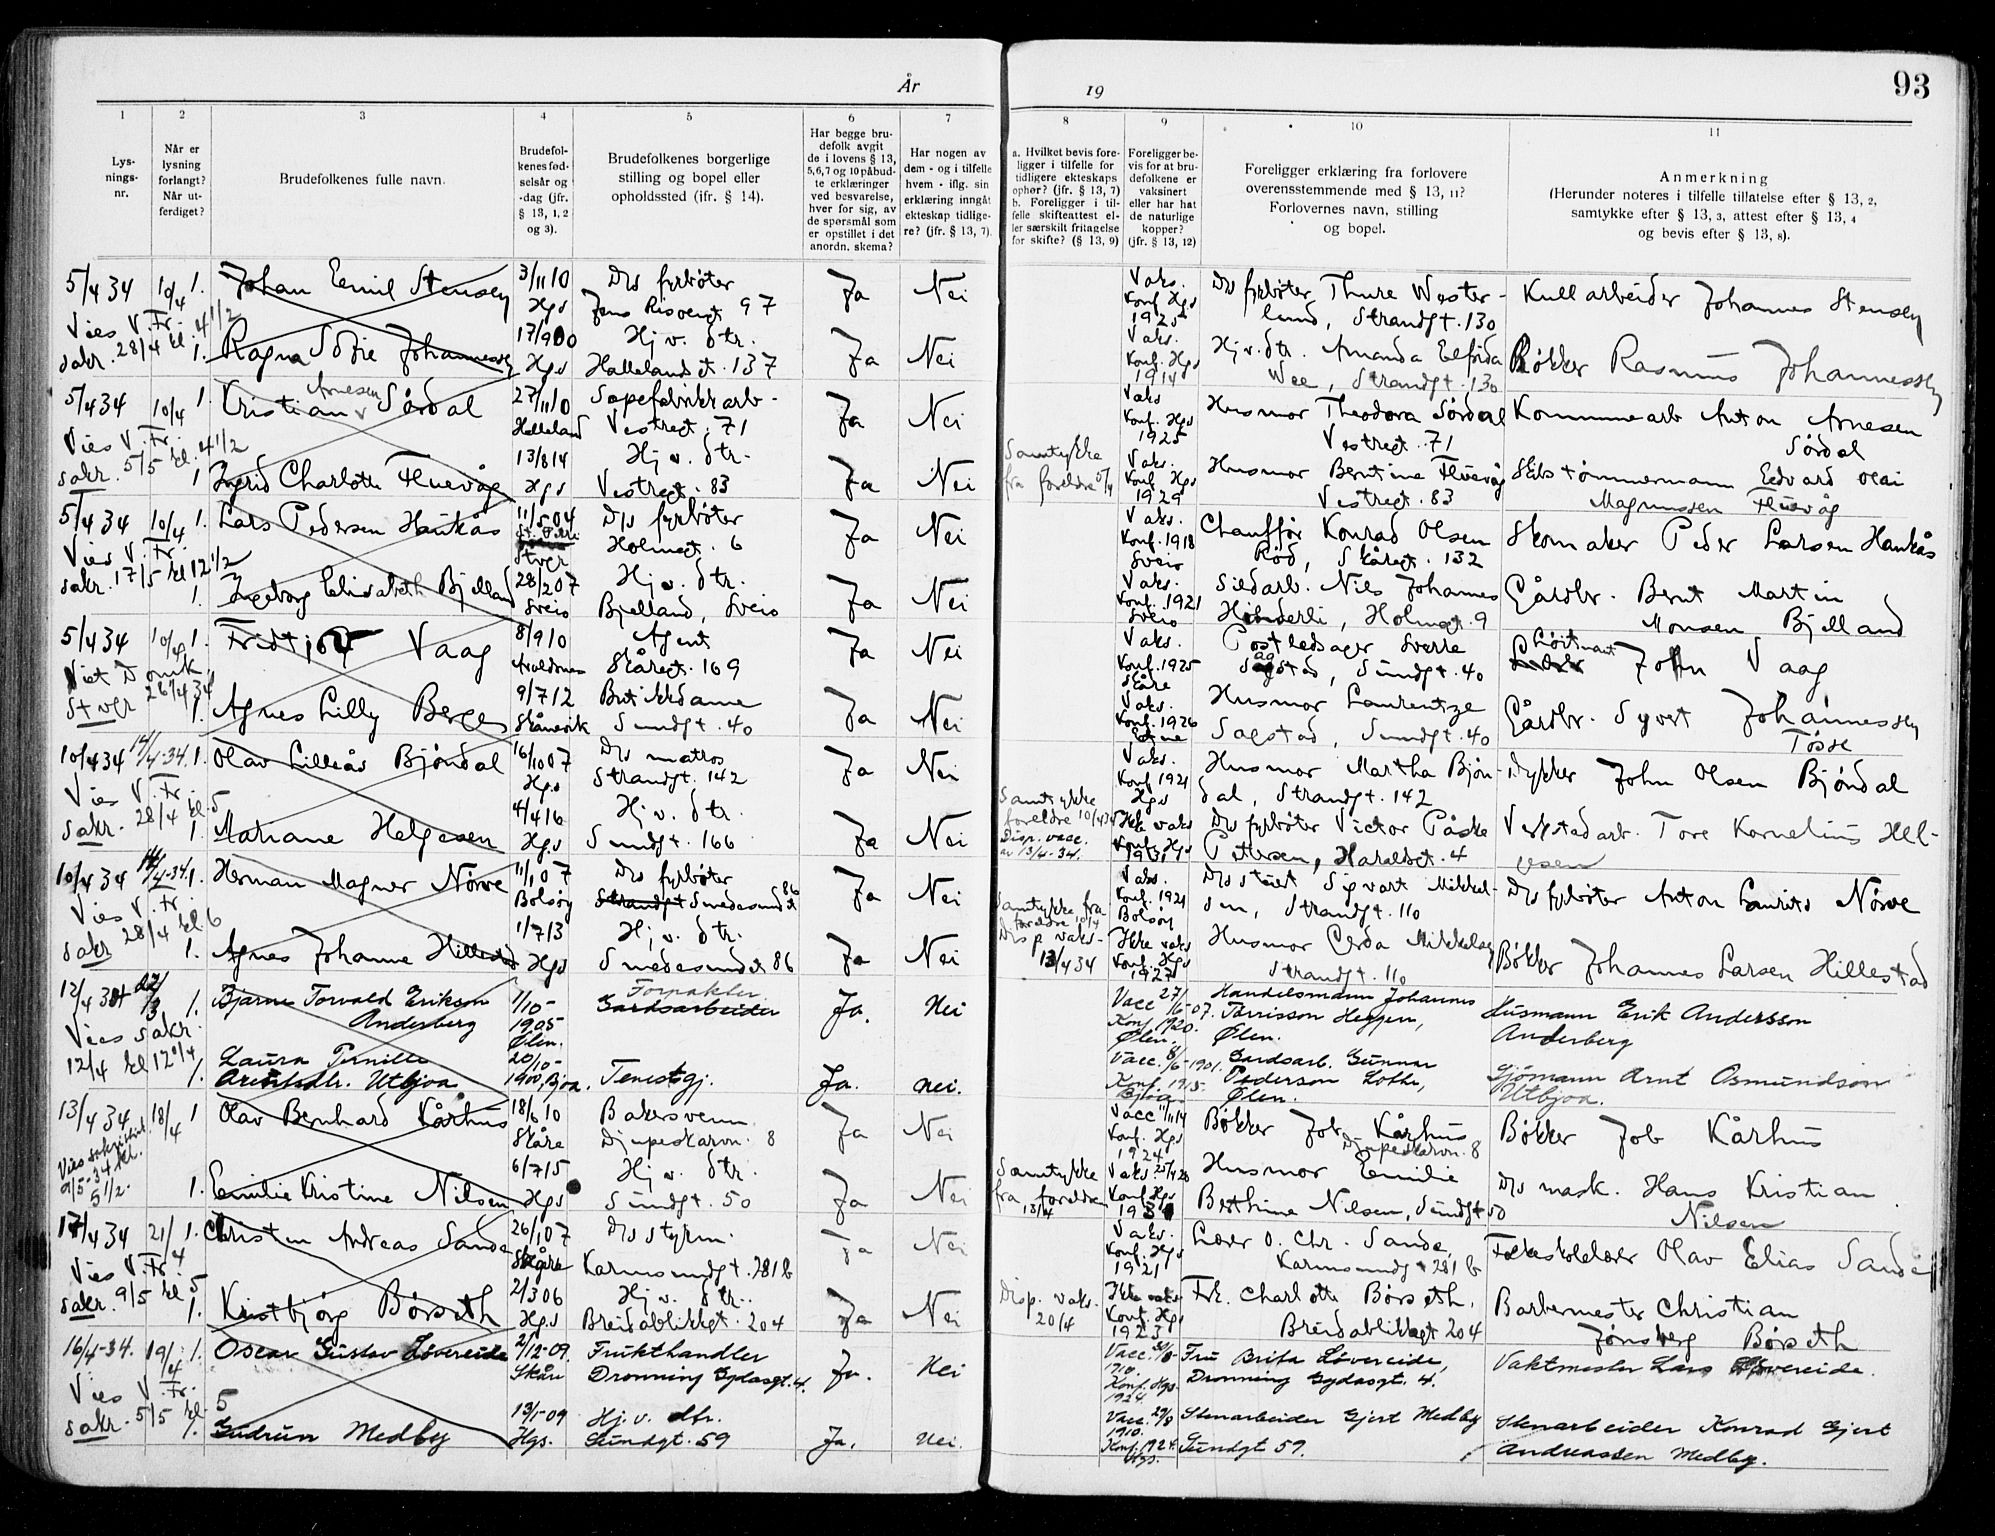 År
19
93
1
2
3
4
5
6
7
8
9
10
11
Lys-
nings-
nr.
Når er
lysning
forlangt?
Når ut-
ferdiget?
Brudefolkenes fulle navn.
Brudefol-
kenes fød-
selsår og
-dag (jfr.
§ 13, 1, 2
og 3).
Brudefolkenes borgerlige
stilling og bopel eller
opholdssted (ifr. § 14).
Har begge bru-
defolk avgit
de i lovens § 13,
5, 6, 7 og 10 påbud-
te erklæringer
ved besvarelse,
hver for sig, av
de spørsmål som
er opstillet i det
anordn. skema?
Har nogen av
dem - og i tilfelle
hvem - iflg. sin
erklæring inngåt
ekteskap tidlige-
re? (jfr. § 13, 7).
a. Hvilket bevis fore-
ligger i tilfelle for
tidligere ekteskaps
ophør? (jfr. § 13, 7)
b. Foreligger i til-
felle skifteattest el-
ler særskilt fritagelse
for skifte? (§ 13, 9)
Foreligger be-
vis for at bru-
defolkene er
vaksinert
eller har hat
de naturlige
kopper?
(jfr. § 13, 12)
Foreligger erklæring fra forlovere
overensstemmende med § 13, 11?
Forlovernes navn, stilling
og bopel.
Anmerkning
(Herunder noteres i tilfelle tillatelse efter § 13, 2,
samtykke efter § 13, 3, attest efter § 13, 4
og bevis efter § 13, 8).
5/4 34 10/4 1. Johan Emil Stensey 3/11 10 Hgs D/s fyrbøter 97 Ja Nei Vaks. Konf. Hgs 1925 D/s fyrbøter Thure Wester-
lund, Strandgt. 130 Kullarbeider Johannes Stensey
Vies V. Fr. sakr. 28/4 kl. 4 1/2
1. Ragna Sofie Johannessen 17/9 00 Hgs Hj. v. dtr. Hallelandsgt. 137 Ja Nei Vaks. Konf. Hgs 1914 Hj. v. dtr. Amanda Elfrida
Wee, Strandgt. 130 Bøkker Rasmus Johannessen
5/4 34 10/4 1. Kristian Arnesen Sørdal 27/11 10 Helleland Såpefabrikkarb. Vestregt. 71 Ja Nei Vaks Konf. Hgs 1925 Husmor Theodora Sørdal
Vestregt. 71 Kommunearb Anton Arnesen
Sørdal
Vies V. Fr. sakr. 5/5 kl. 4 1/2
1 Ingrid Charlotte Fluevåg 13/8 14 Hgs Hj. v. dtr. Vestregt. 83 Ja Nei Samtykke fra foreldre 5/4 Vaks. Konf. Hgs 1929 Husmor Berntine Fluevåg
Vestregt. 83 Skibstømmermann Edvard Olai
Magnussen Fluevåg
5/4 34 10/4 1. Lars Pedersen Haukås 11/5 04 Stvgr D/s fyrbøter Holmegt. 6 Ja Nei Vaks. Konf. 1918 Sveio Chauffør Konrad Olsen
Rød, Skåregt. 132 Skomaker Peder Larsen Haukås
Vies V. Fr. sakr. 17/5 kl 12 1/2
1. Ingeborg Elisabeth Bjelland 28/2 07 Sveio Hj. v. dtr. Bjelland, Sveio Ja Nei Vaks. Konf. 1921 Sveio Sildarb. Nils Johannes
Hinderli, Holmegt. 9 Gårdbr. Bernt Martin
Monsen Bjelland
5/4 34 10/4 1. Fridtjof Vaag 8/9 10 Avaldsnes Agent Skåregt. 169 Ja Nei Vaks. Konf. 1925 Skåre Postledsager Sverre
Sagstad, Sundgt. 40 Løitnant John Vaag
Stvgr 26/4 34
1. Agnes Lilly Berge 9/7 12 Skånevik Butikkdame Sundgt. 40 Ja Nei Vaks. Konf. 1926 Etne Husmor Laurentze
Sagstad, Sundgt. 40 Gårdbr. Syvert Johannessen
Tøsse
10/4 34 14/4-34. 1. Olav Lilleås Bjøndal 16/10 07 Hgs D/s matros Strandgt. 142 Ja Nei Vaks. Konf. 1921 Hgs Husmor Martha Bjøn-
dal, Strandgt. 142 Dykker John Olsen Bjøndal
Vies V. Fr. sakr. 28/4 kl. 5
1. Mariane Helgesen 4/4 16 Hgs Hj. v. dtr. Sundgt. 166 Ja Nei Samtykke foreldre 10/4 34 Disp. vacc. av 13/4-34. Ikke vaks Konf. Hgs 1931 D/s fyrbøter Victor Påske
Pettersen, Haraldsgt. 4 Verkstedarb. Tore Kornelius Hel-
gesen
10/4 34 14/4-34. 1. Herman Magner Nørve 11/1 07 Bolsøy D/s fyrbøter Strandgt Smedasundet 86 Ja Nei Vaks. Konf. 1921 Bolsøy D/s stuert Sigvart Mikkel-
sen, Strandgt. 110 D/s fyrbøter Anton Laurits Nørve
Vies V. Fr. sakr 28/4 kl. 6
1. Agnes Johanne Hillestad 1/7 13 Hgs Hj. v. dtr. Smedesundet 86 Ja Nei Samtykke fra foreldre 10/4 Disp. vaks- 13/4 34 Ikke vaks Konf. Hgs 1927 Husmor Gerda Mikkelsen
Strandgt. 110 Bøkker Johannes Larsen Hillestad
12/4 34 22/3 1. Bjarne Torvald Erikson
Anderberg 1/10-1905 Ølen. Forpakter Gardsarbeider Ja. Nei Vacc 27/6-07. Konf. 1920. Ølen. Handelsmann Johannes
Torrisson Heggen,
Ølen. Husmann Erik Andersson
Anderberg
Vies sakr. 12/4 kl 12
1. Laura Pernille
Arntsdtr. Utbjoa 20/10-1900, Bjoa. Tenestgj. Ja. nei. Vacc. 8/6-1901. Konf. 1915. Bjoa. Gardsarb. Gunnar
Pederson Lothe,
Ølen. Sjømann Arnt Osmundson
Utbjoa.
13/4 34 18/4 1 Olav Bernhard Kårhus 18/6 10 Skåre Bakersvenn Djupeskarvn. 8 Ja Nei Vacc 11/11 14 Konf. Hgs 1924 Bøkker Job Kårhus
Djupeskarvn. 8 Bøkker Job Kårhus
Vies sakristiet 9/5-34 kl. 5 1/2.
1. Emilie Kristine Nilsen 6/7 15 Hgs Hj. v. dtr. Sundgt. 50 Ja Nei Samtykke fra foreldre 13/4 Vaks. Konf. Hgs Husmor Emilie
Berthine Nilsen, Sundgt 50 D/s mask. Hans Kristian
Nilsen
17/4 34 21/4 1. Christen Andreas Sande 26/1 07 Skåre D/s styrm. Karmsundgt. 281 b Ja Nei Vaks. Konf. Hgs 1921 Lærer O. Chr. Sande,
Karmsundgt 281 b Folkeskolelærer Olav Elias Sande
Vies V. Fr. sakr. 9/5 kl 5
1. Kristbjørg Børseth 2/3 06 Hgs Hj. v. dtr. Breidablikkgt. 204 Ja Nei Disp. vaks. 20/4 Ikke vaks Konf. Hgs 1923 Frk. Charlotte Børseth,
Breidablikkgt 204 Barbermester Christian
Jønsberg Børseth
16/4-34. 19/4 1. Oscar Gustav Løvereide 2/12-09. Skåre Frukthandler Dronning Gydasgt. 4. Ja. Nei Vacc. 30/8-1910. Konf. Hgs. 1924. Fru Brita Løvereide,
Dronning Gydasgt. 4. Vaktmester Lars Løvereide.
Vies V. Fr. sakr. 5/5 kl. 5
1. Gudrun Medby 13/1-09 Hgs. Hj. v. dtr. Sundgt. 59 Ja. Nei. Vacc. 29/9 1910. Konf. 1924. Hgs. Stenarbeider Gjert Medby
Sundgt 59. Stenarbeider Konrad Gjert
Andreassen Medby.